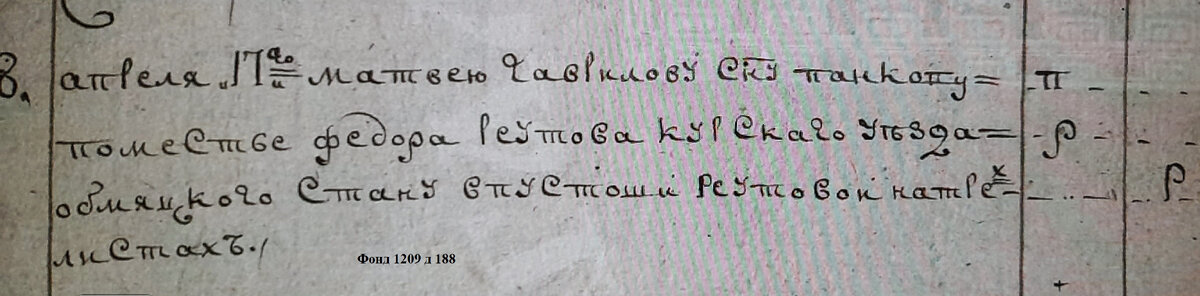 в. апреля 17 го матвею гаврилову сну панкопу = п
поместье федора реутова курскаго уѣзда = р
обмяцкого стану впустоши реутовои натрех = р
листахъ.
Фонд 1209 д 188